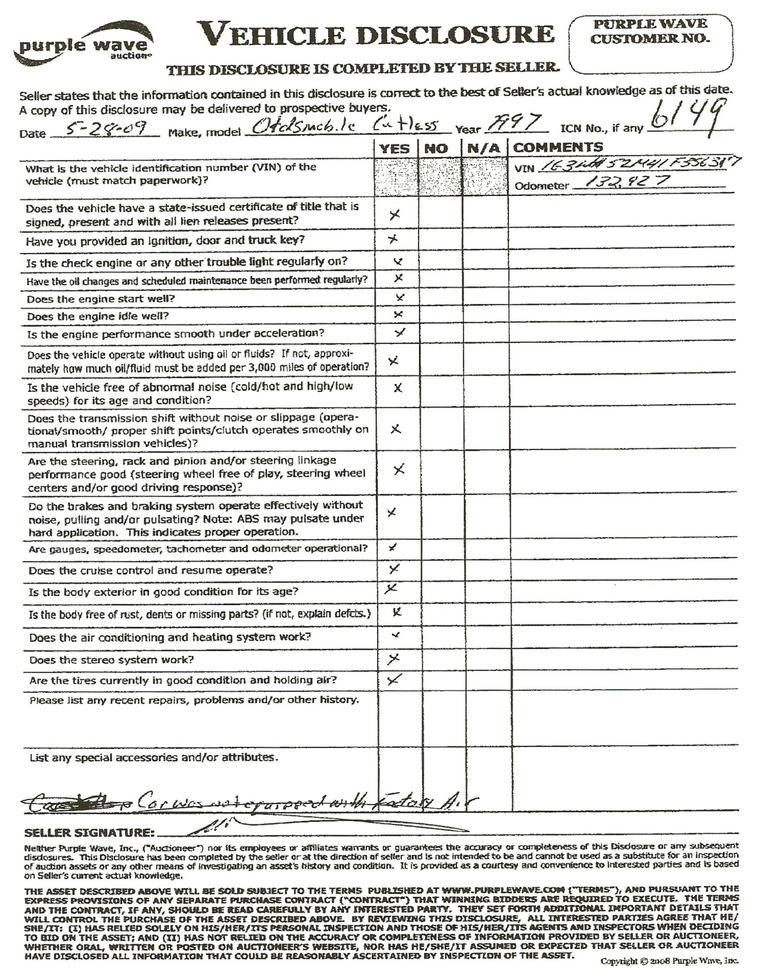 purple wave
auction®
VEHICLE DISCLOSURE
PURPLE WAVE
CUSTOMER NO.
THIS DISCLOSURE IS COMPLETED BY THE SELLER.
Seller states that the information contained in this disclosure is correct to the best of Seller's actual knowledge as of this date.
A copy of this disclosure may be delivered to prospective buyers.
Date 5-28-09 Make, model Oldsmobile Cutless Year 1997 ICN No., if any 6149
YES NO N/A COMMENTS
What is the vehicle identification number (VIN) of the
vehicle (must match paperwork)?
VIN
Odometer 132,927
Does the vehicle have a state-issued certificate of title that is
signed, present and with all lien releases present? X
Have you provided an ignition, door and truck key? X
Is the check engine or any other trouble light regularly on? X
Have the oil changes and scheduled maintenance been performed regularly? X
Does the engine start well? X
Does the engine idle well? X
Is the engine performance smooth under acceleration? X
Does the vehicle operate without using oil or fluids? If not, approxi-
mately how much oil/fluid must be added per 3,000 miles of operation? X
Is the vehicle free of abnormal noise (cold/hot and high/low
speeds) for its age and condition? X
Does the transmission shift without noise or slippage (opera-
tional/smooth/ proper shift points/clutch operates smoothly on
manual transmission vehicles)? X
Are the steering, rack and pinion and/or steering linkage
performance good (steering wheel free of play, steering wheel
centers and/or good driving response)? X
Do the brakes and braking system operate effectively without
noise, pulling and/or pulsating? Note: ABS may pulsate under
hard application. This indicates proper operation. X
Are gauges, speedometer, tachometer and odometer operational? X
Does the cruise control and resume operate? X
Is the body exterior in good condition for its age? X
Is the body free of rust, dents or missing parts? (if not, explain defcts.) X
Does the air conditioning and heating system work? X
Does the stereo system work? X
Are the tires currently in good condition and holding air? X
Please list any recent repairs, problems and/or other history.
List any special accessories and/or attributes.
Car was not equipped with Factory Air
SELLER SIGNATURE:
Neither Purple Wave, Inc., ("Auctioneer") nor its employees or affiliates warrants or guarantees the accuracy or completeness of this Disclosure or any subsequent
disclosures. This Disclosure has been completed by the seller or at the direction of seller and is not intended to be and cannot be used as a substitute for an inspection
of auction assets or any other means of investigating an asset's history and condition. It is provided as a courtesy and convenience to interested parties and is based
on Seller's current actual knowledge.
THE ASSET DESCRIBED ABOVE WILL BE SOLD SUBJECT TO THE TERMS PUBLISHED AT WWW.PURPLEWAVE.COM ("TERMS"), AND PURSUANT TO THE
EXPRESS PROVISIONS OF ANY SEPARATE PURCHASE CONTRACT ("CONTRACT") THAT WINNING BIDDERS ARE REQUIRED TO EXECUTE. THE TERMS
AND THE CONTRACT, IF ANY, SHOULD BE READ CAREFULLY BY ANY INTERESTED PARTY. THEY SET FORTH ADDITIONAL IMPORTANT DETAILS THAT
WILL CONTROL THE PURCHASE OF THE ASSET DESCRIBED ABOVE. BY REVIEWING THIS DISCLOSURE, ALL INTERESTED PARTIES AGREE THAT HE/
SHE/IT: (I) HAS RELIED SOLELY ON HIS/HER/ITS PERSONAL INSPECTION AND THOSE OF HIS/HER/ITS AGENTS AND INSPECTORS WHEN DECIDING
TO BID ON THE ASSET; AND (II) HAS NOT RELIED ON THE ACCURACY OR COMPLETENESS OF INFORMATION PROVIDED BY SELLER OR AUCTIONEER,
WHETHER ORAL, WRITTEN OR POSTED ON AUCTIONEER'S WEBSITE, NOR HAS HE/SHE/IT ASSUMED OR EXPECTED THAT SELLER OR AUCTIONEER
HAVE DISCLOSED ALL INFORMATION THAT COULD BE REASONABLY ASCERTAINED BY INSPECTION OF THE ASSET.
Copyright © 2008 Purple Wave, Inc.